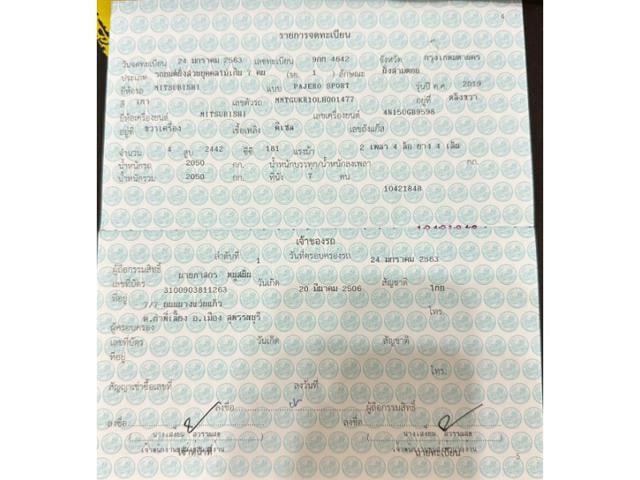 4
รายการจดทะเบียน
วันจดทะเบียน 24 มกราคม 2563 เลขทะเบียน 9กก 4642 จังหวัด กรุงเทพมหานคร
ประเภท รถยนต์นั่งส่วนบุคคลไม่เกิน 7 คน (รย. 1) ลักษณะ นั่งสามตอน
ยี่ห้อรถ MITSUBISHI แบบ PAJERO SPORT รุ่นปี ค.ศ. 2019
สี เทา เลขตัวรถ MMTGUKR10LH001477 อยู่ที่
ยี่ห้อเครื่องยนต์ MITSUBISHI เลขเครื่องยนต์ 4N15UGB9598
อยู่ที่ ขวาเครื่อง เชื้อเพลิง ดีเซล เลขถังแก๊ส
จำนวน 4 สูบ 2442 ซีซี 181 แรงม้า 2 เพลา 4 ล้อ ยาง 4 เส้น
น้ำหนักรถ 2050 กก. น้ำหนักบรรทุก/น้ำหนักลงเพลา กก.
น้ำหนักรวม 2050 กก. ที่นั่ง 7 คน
10421848
เจ้าของรถ
ลำดับที่ 1 วันที่ครอบครองรถ 24 มกราคม 2563
ผู้ถือกรรมสิทธิ์ นายภาสกร
เลขที่บัตร 3100903811263 วันเกิด 20 มีนาคม 2506 สัญชาติ ไทย
ที่อยู่ 7/7 ถนนนางแว่นแก้ว
ต.ท่าพี่เลี้ยง อ.เมือง สุพรรณบุรี โทร.
ผู้ครอบครอง
เลขที่บัตร วันเกิด สัญชาติ
ที่อยู่
โทร.
สัญญาเช่าซื้อเลขที่ ลงวันที่
ลงชื่อ ผู้ถือกรรมสิทธิ์
ลงชื่อ ลงชื่อ
เจ้าหน้าที่ นายทะเบียน
5